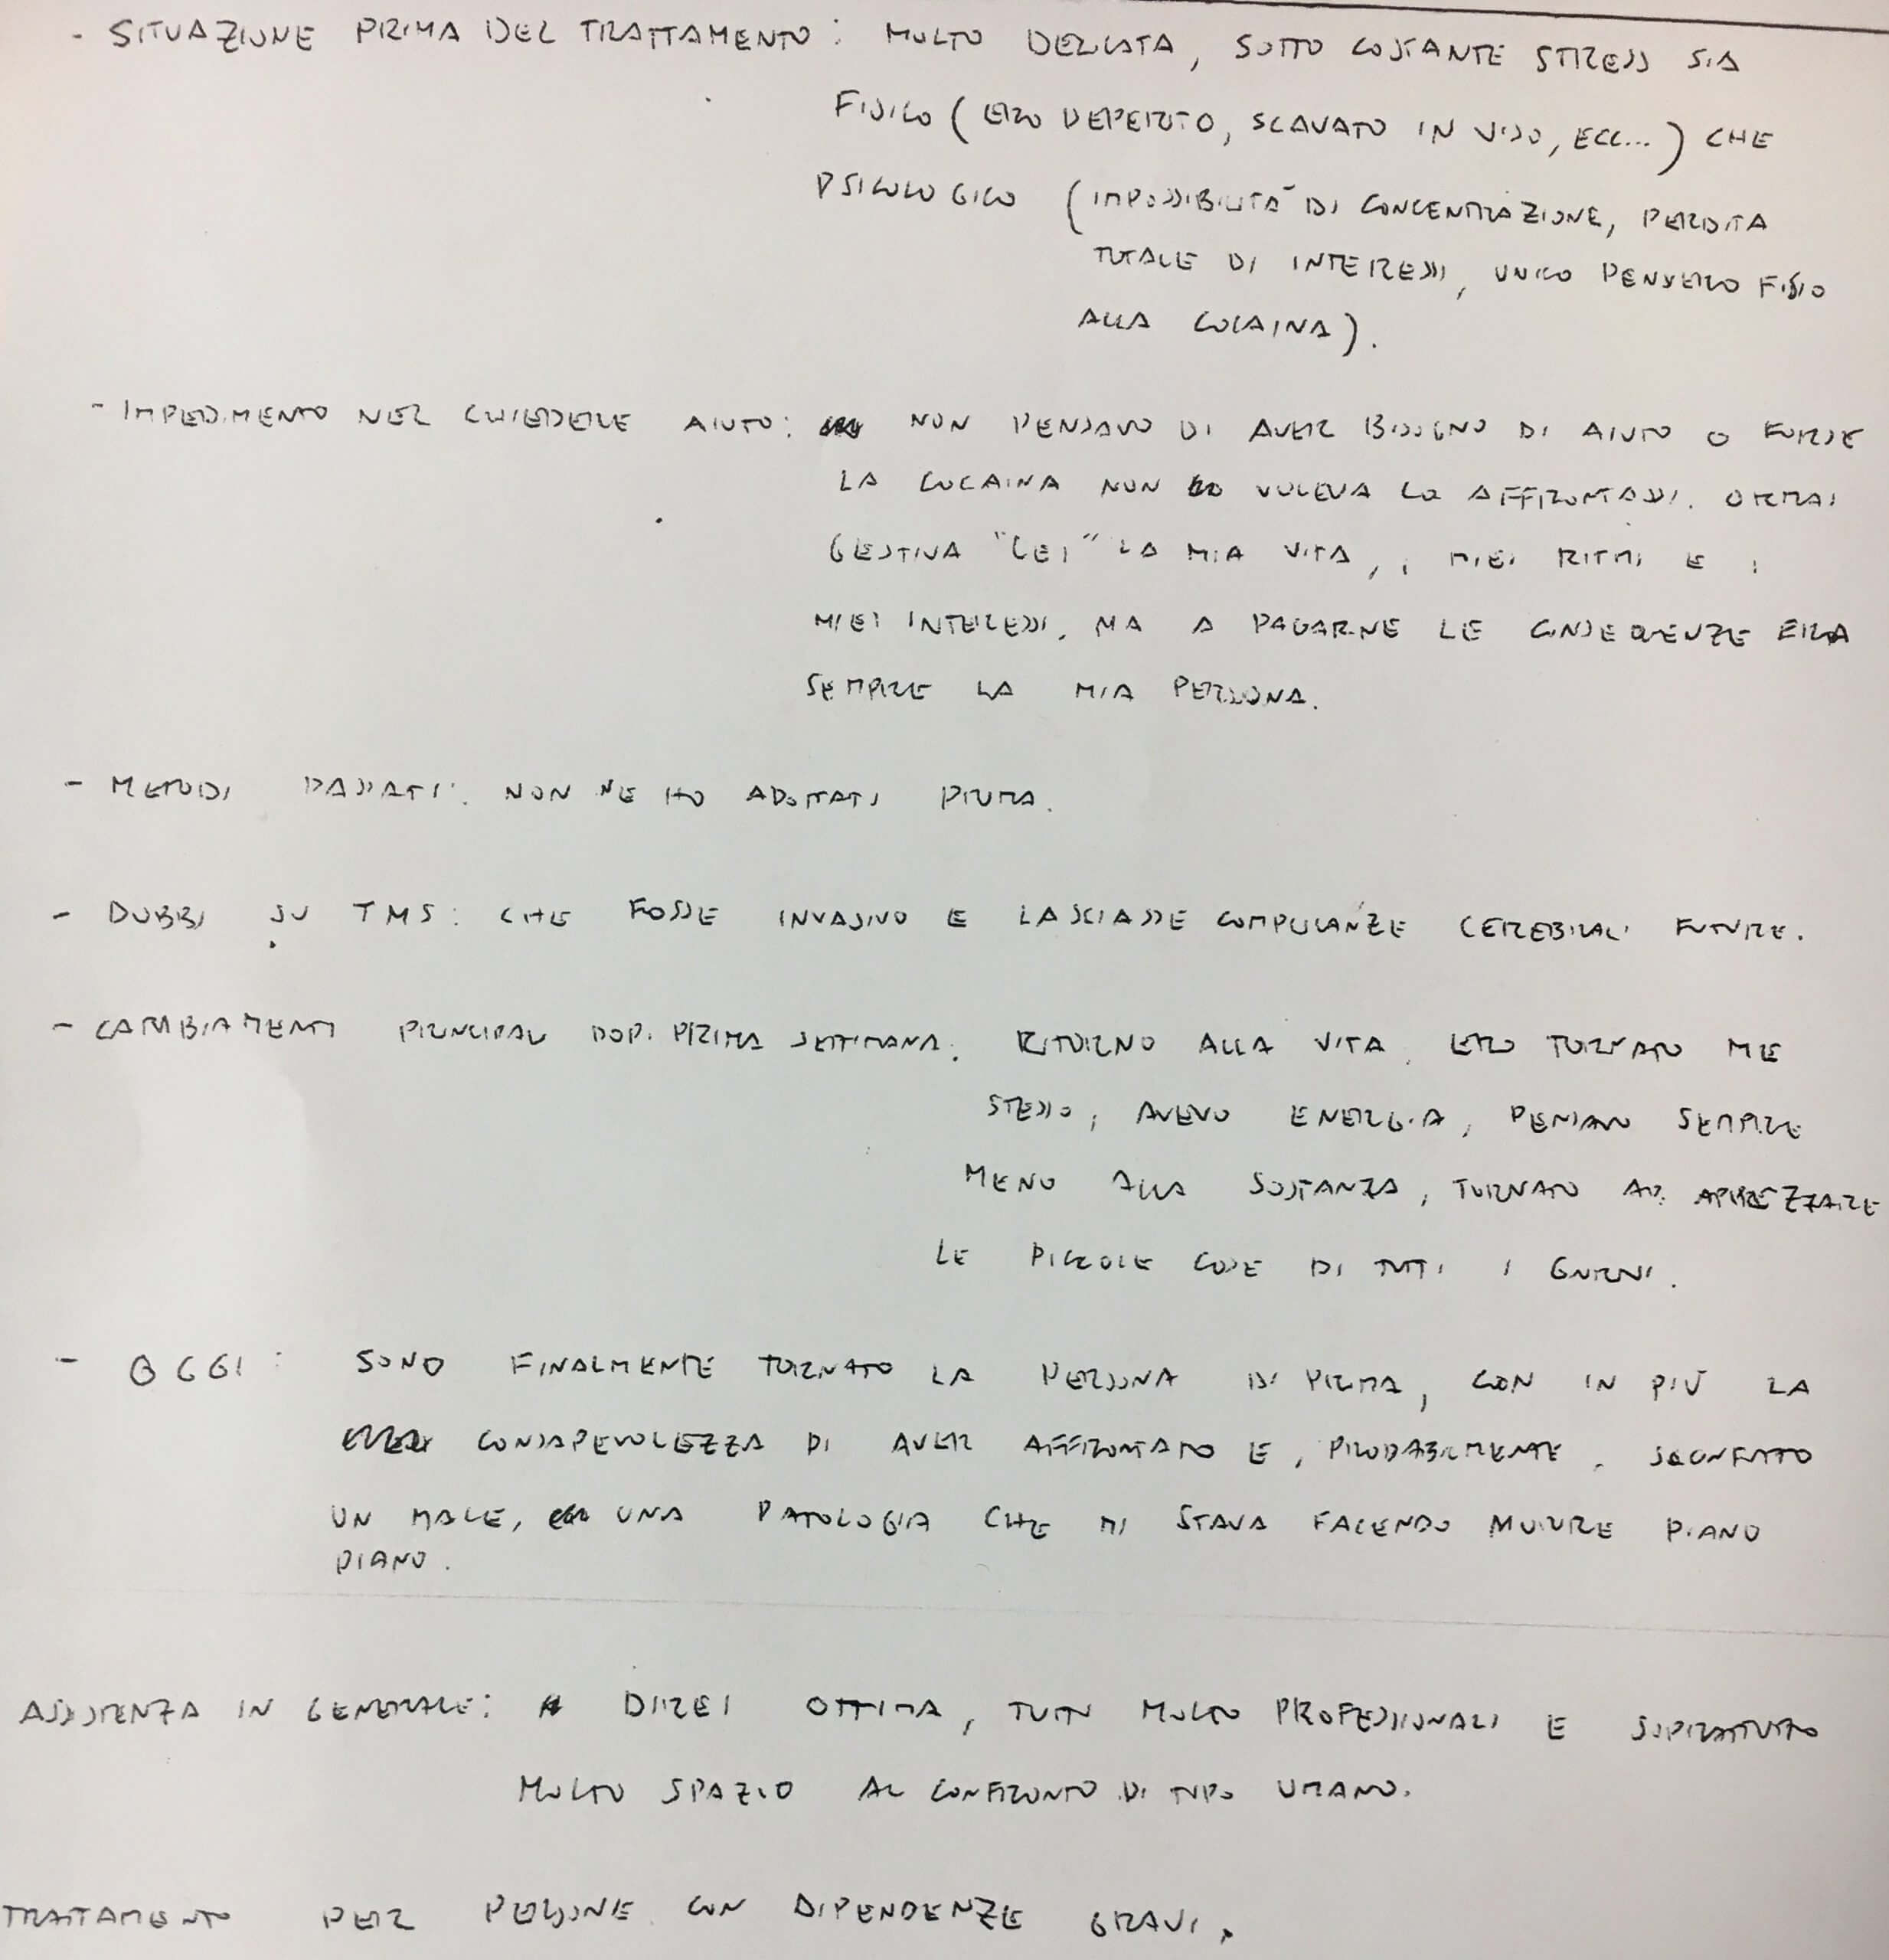 - SITUAZIONE PRIMA DEL TRATTAMENTO: MOLTO DELICATA, SOTTO COSTANTE STRESS SIA
FISICO (ERO DEPERITO, SCAVATO IN VISO, ECC...) CHE
PSICOLOGICO (IMPOSSIBILITÀ DI CONCENTRAZIONE, PERDITA
TOTALE DI INTERESSI, UNICO PENSIERO FISSO
ALLA COCAINA).
- IMPEDIMENTO NEL CHIEDERE AIUTO: NON PENSAVO DI AVER BISOGNO DI AIUTO O FORSE
LA COCAINA NON VOLEVA LO AFFRONTASSI. ORMAI
GESTIVA "LEI" LA MIA VITA, I MIEI RITMI E I
MIEI INTERESSI, MA A PAGARNE LE CONSEGUENZE ERA
SEMPRE LA MIA PERSONA.
- METODI PASSATI: NON NE HO ADOTTATI PRIMA.
- DUBBI SU TMS: CHE FOSSE INVASIVO E LASCIASSE COMPLICANZE CEREBRALI FUTURE.
- CAMBIAMENTI PRINCIPALI DOPO PRIMA SETTIMANA: RITORNO ALLA VITA. ERO TORNATO ME
STESSO, AVEVO ENERGIA, PENSAVO SEMPRE
MENO ALLA SOSTANZA, TORNATO AD APPREZZARE
LE PICCOLE COSE DI TUTTI I GIORNI.
- OGGI: SONO FINALMENTE TORNATO LA PERSONA DI PRIMA, CON IN PIÙ LA
CONSAPEVOLEZZA DI AVER AFFRONTATO E, PROBABILMENTE, SCONFITTO
UN MALE, UNA PATOLOGIA CHE MI STAVA FACENDO MORIRE PIANO
PIANO.
ASSISTENZA IN GENERALE: DIREI OTTIMA, TUTTI MOLTO PROFESSIONALI E SOPRATTUTTO
MOLTO SPAZIO AL CONFRONTO DI TIPO UMANO.
TRATTAMENTO PER PERSONE CON DIPENDENZE GRAVI.